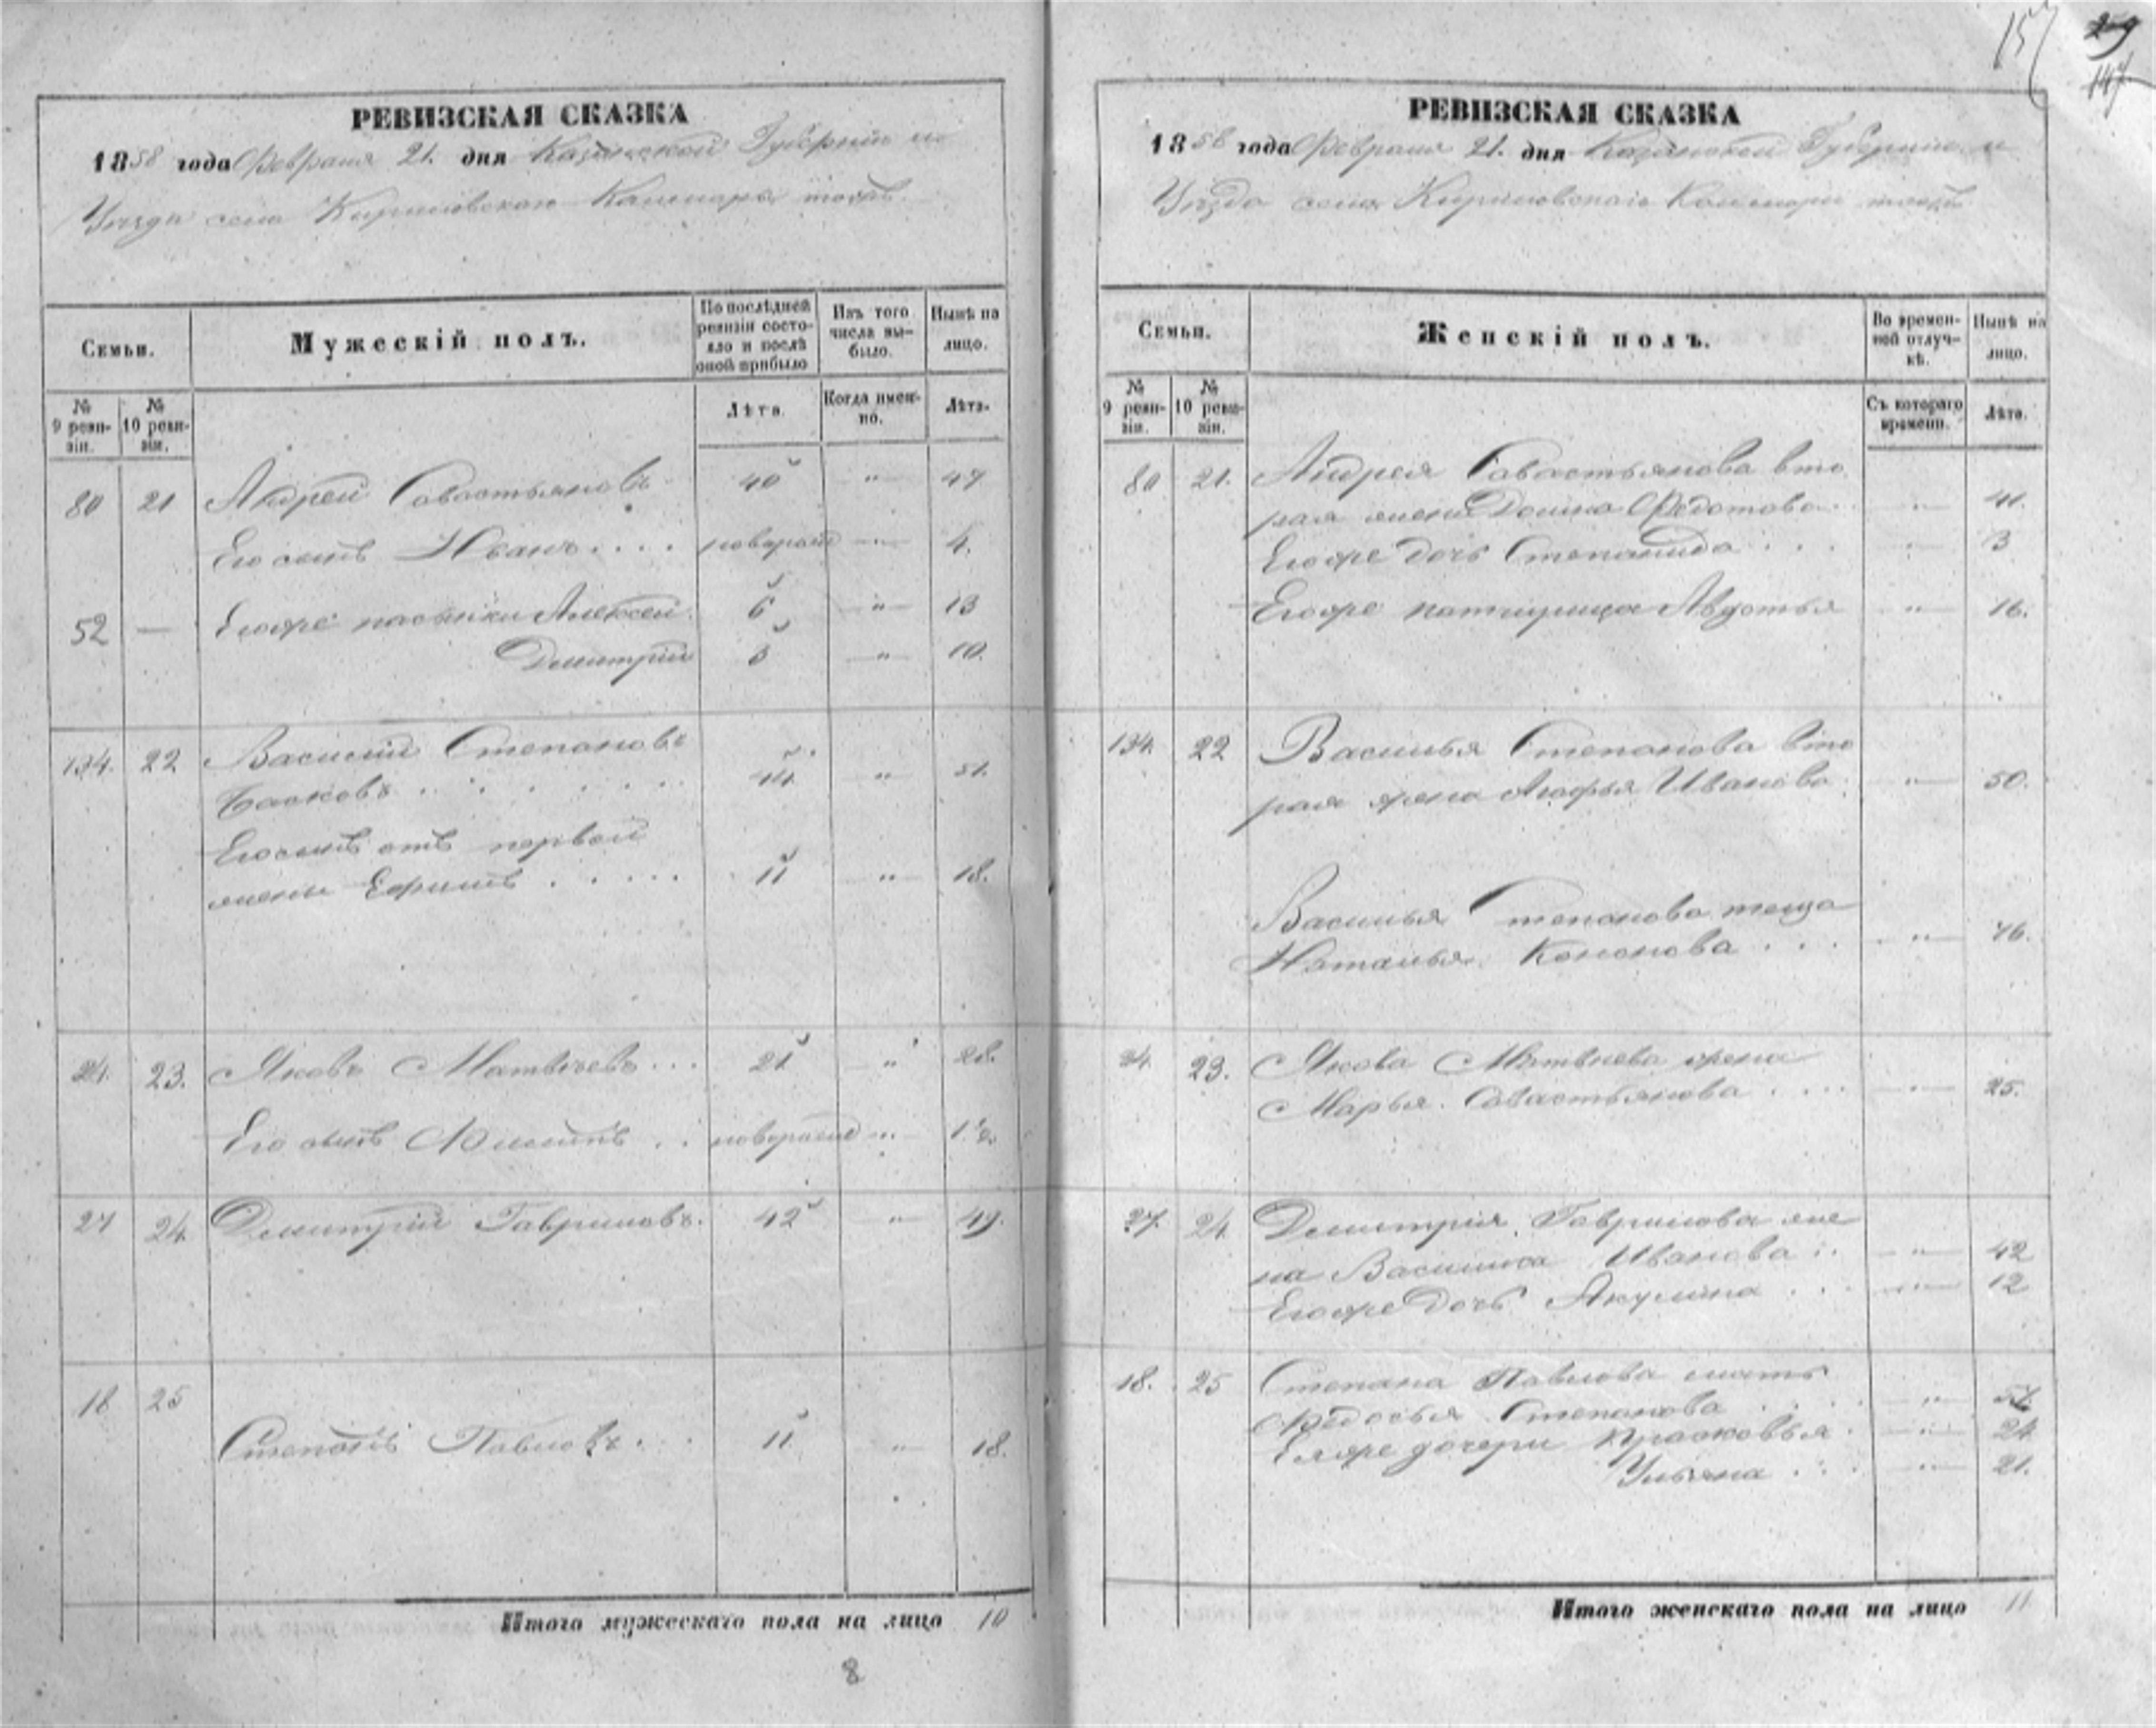 157
259
147
РЕВИЗСКАЯ СКАЗКА
1858 года Февраля 21. дня Казанской Губерніи и
Уѣзда села Кириловскаго Кашмары тожъ.
Семьи.
Мужескій полъ.
По послѣдней ревизіи состояло и послѣ оной прибыло
Изъ того числа выбыло.
Нынѣ на лицо.
№ 9 ревизіи.
№ 10 ревизіи.
Лѣта.
Когда именно.
Лѣта.
80 21 Андрей Савастьяновъ 40 " 47
Его сынъ Иванъ.... новорожд " 4.
52 — Егоже пасынки Алексей 6 " 13
Дмитрій 3 " 10.
134. 22 Василій Степановъ
44 " 51.
Его сынъ отъ первой
жены Ефимъ ..... 11 " 18.
24. 23. Яковъ Матвѣевъ... 21 " 28.
Его сынъ .. новорожд "
27 24. Дмитрій Гавриловъ. 42 " 49.
18 25
Степанъ Павловъ... 11 " 18.
Итого мужескаго пола на лицо 10
8
РЕВИЗСКАЯ СКАЗКА
1858 года Февраля 21. дня Казанской Губерніи и
Уѣзда села Кириловскаго Кашмары тожъ
Семьи.
Женскій полъ.
Во временной отлучкѣ.
Нынѣ на лицо.
№ 9 ревизіи.
№ 10 ревизіи.
Съ котораго времени.
Лѣта.
80 21. Андрея Савастьянова вто
рая жена Домна Федотова. " 41.
Егоже дочь Степанида ... " 3
Егоже падчерица Авдотья " 16.
134. 22 Василья Степанова вто
рая жена Агафья Иванова. " 50.
Василья Степанова теща
Наталья Кононова ... " 76.
24. 23. Якова Матвѣева жена
Марья Савастьянова .... " 25.
27. 24. Дмитрія Гаврилова же
на Василиса Иванова .. " 42
Егоже дочь Акулина ... " 12
18. 25 Степана Павлова мать
Федосья Степанова ... "
Еяже дочери Прасковья. " 24
Ульяна ... " 21.
Итого женскаго пола на лицо 11